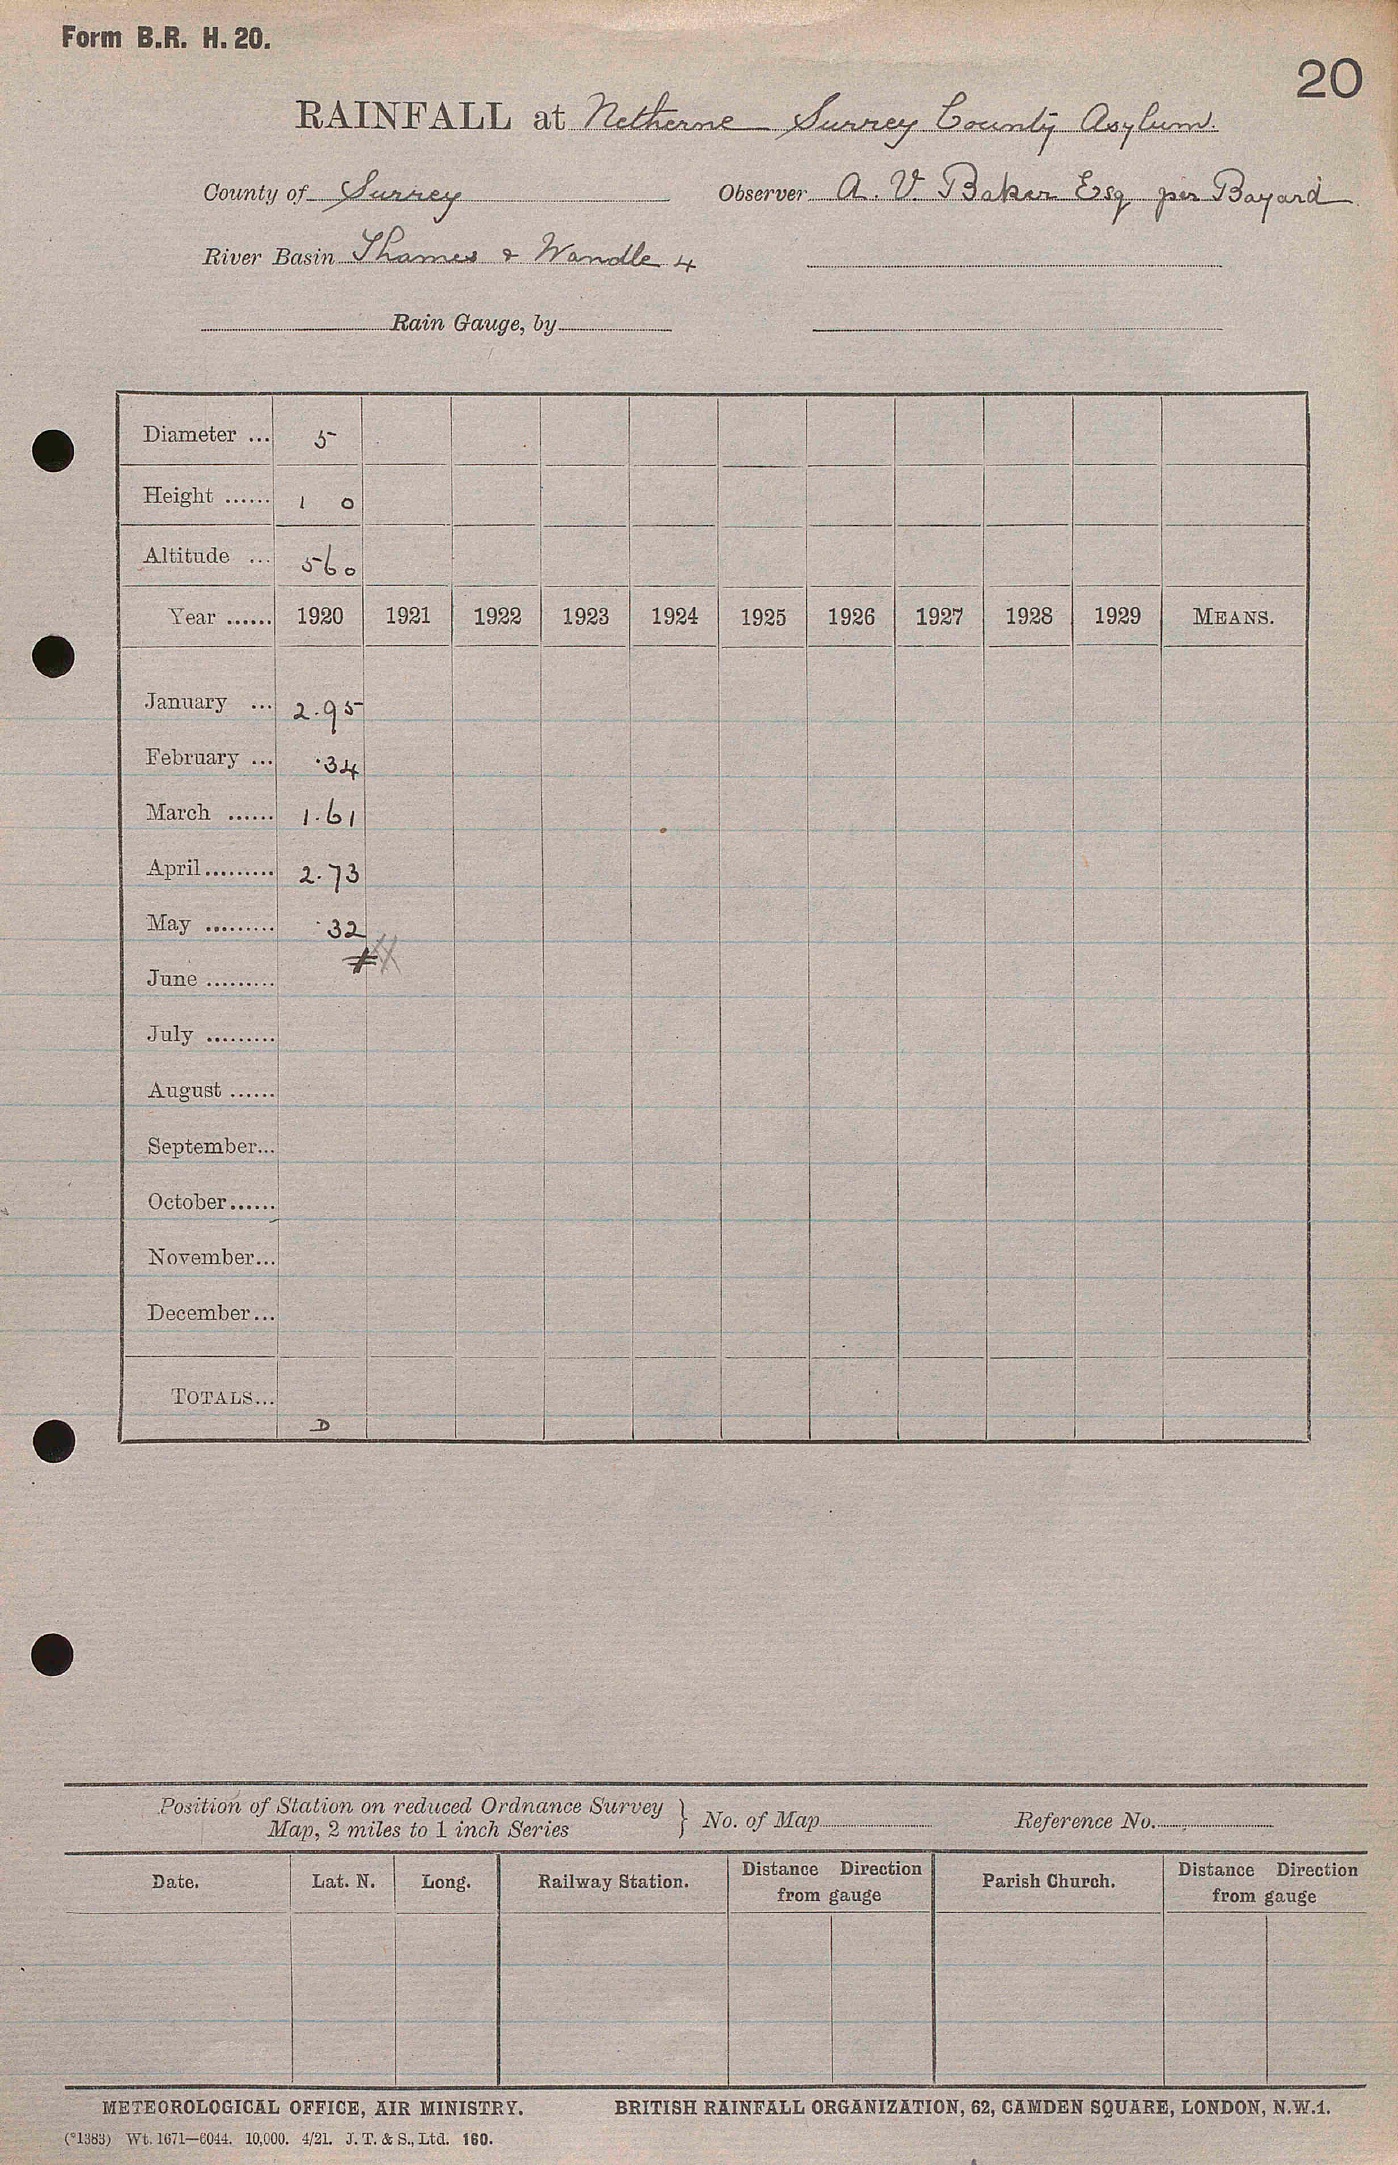 Form B.R. H. 20.
20
RAINFALL at Netherne Surrey County Asylum.
County of Surrey Observer A. V. Baker Esq per Bayard
River Basin Thames & Wandle 4
Rain Gauge, by
Diameter ... 5
Height ...... 1 0
Altitude ... 560
Year ...... 1920 1921 1922 1923 1924 1925 1926 1927 1928 1929 MEANS.
January ... 2.95
February ... .34
March ...... 1.61
April ......... 2.73
May ......... .32
June .........
July .........
August ......
September...
October......
November...
December...
TOTALS...
D
Position of Station on reduced Ordnance Survey
Map, 2 miles to 1 inch Series } No. of Map Reference No.
Date. Lat. N. Long. Railway Station. Distance Direction from gauge Parish Church. Distance Direction from gauge
METEOROLOGICAL OFFICE, AIR MINISTRY. BRITISH RAINFALL ORGANIZATION, 62, CAMDEN SQUARE, LONDON, N.W.1.
(*1383) Wt. 1671—6044. 10,000. 4/21. J. T. & S., Ltd. 160.